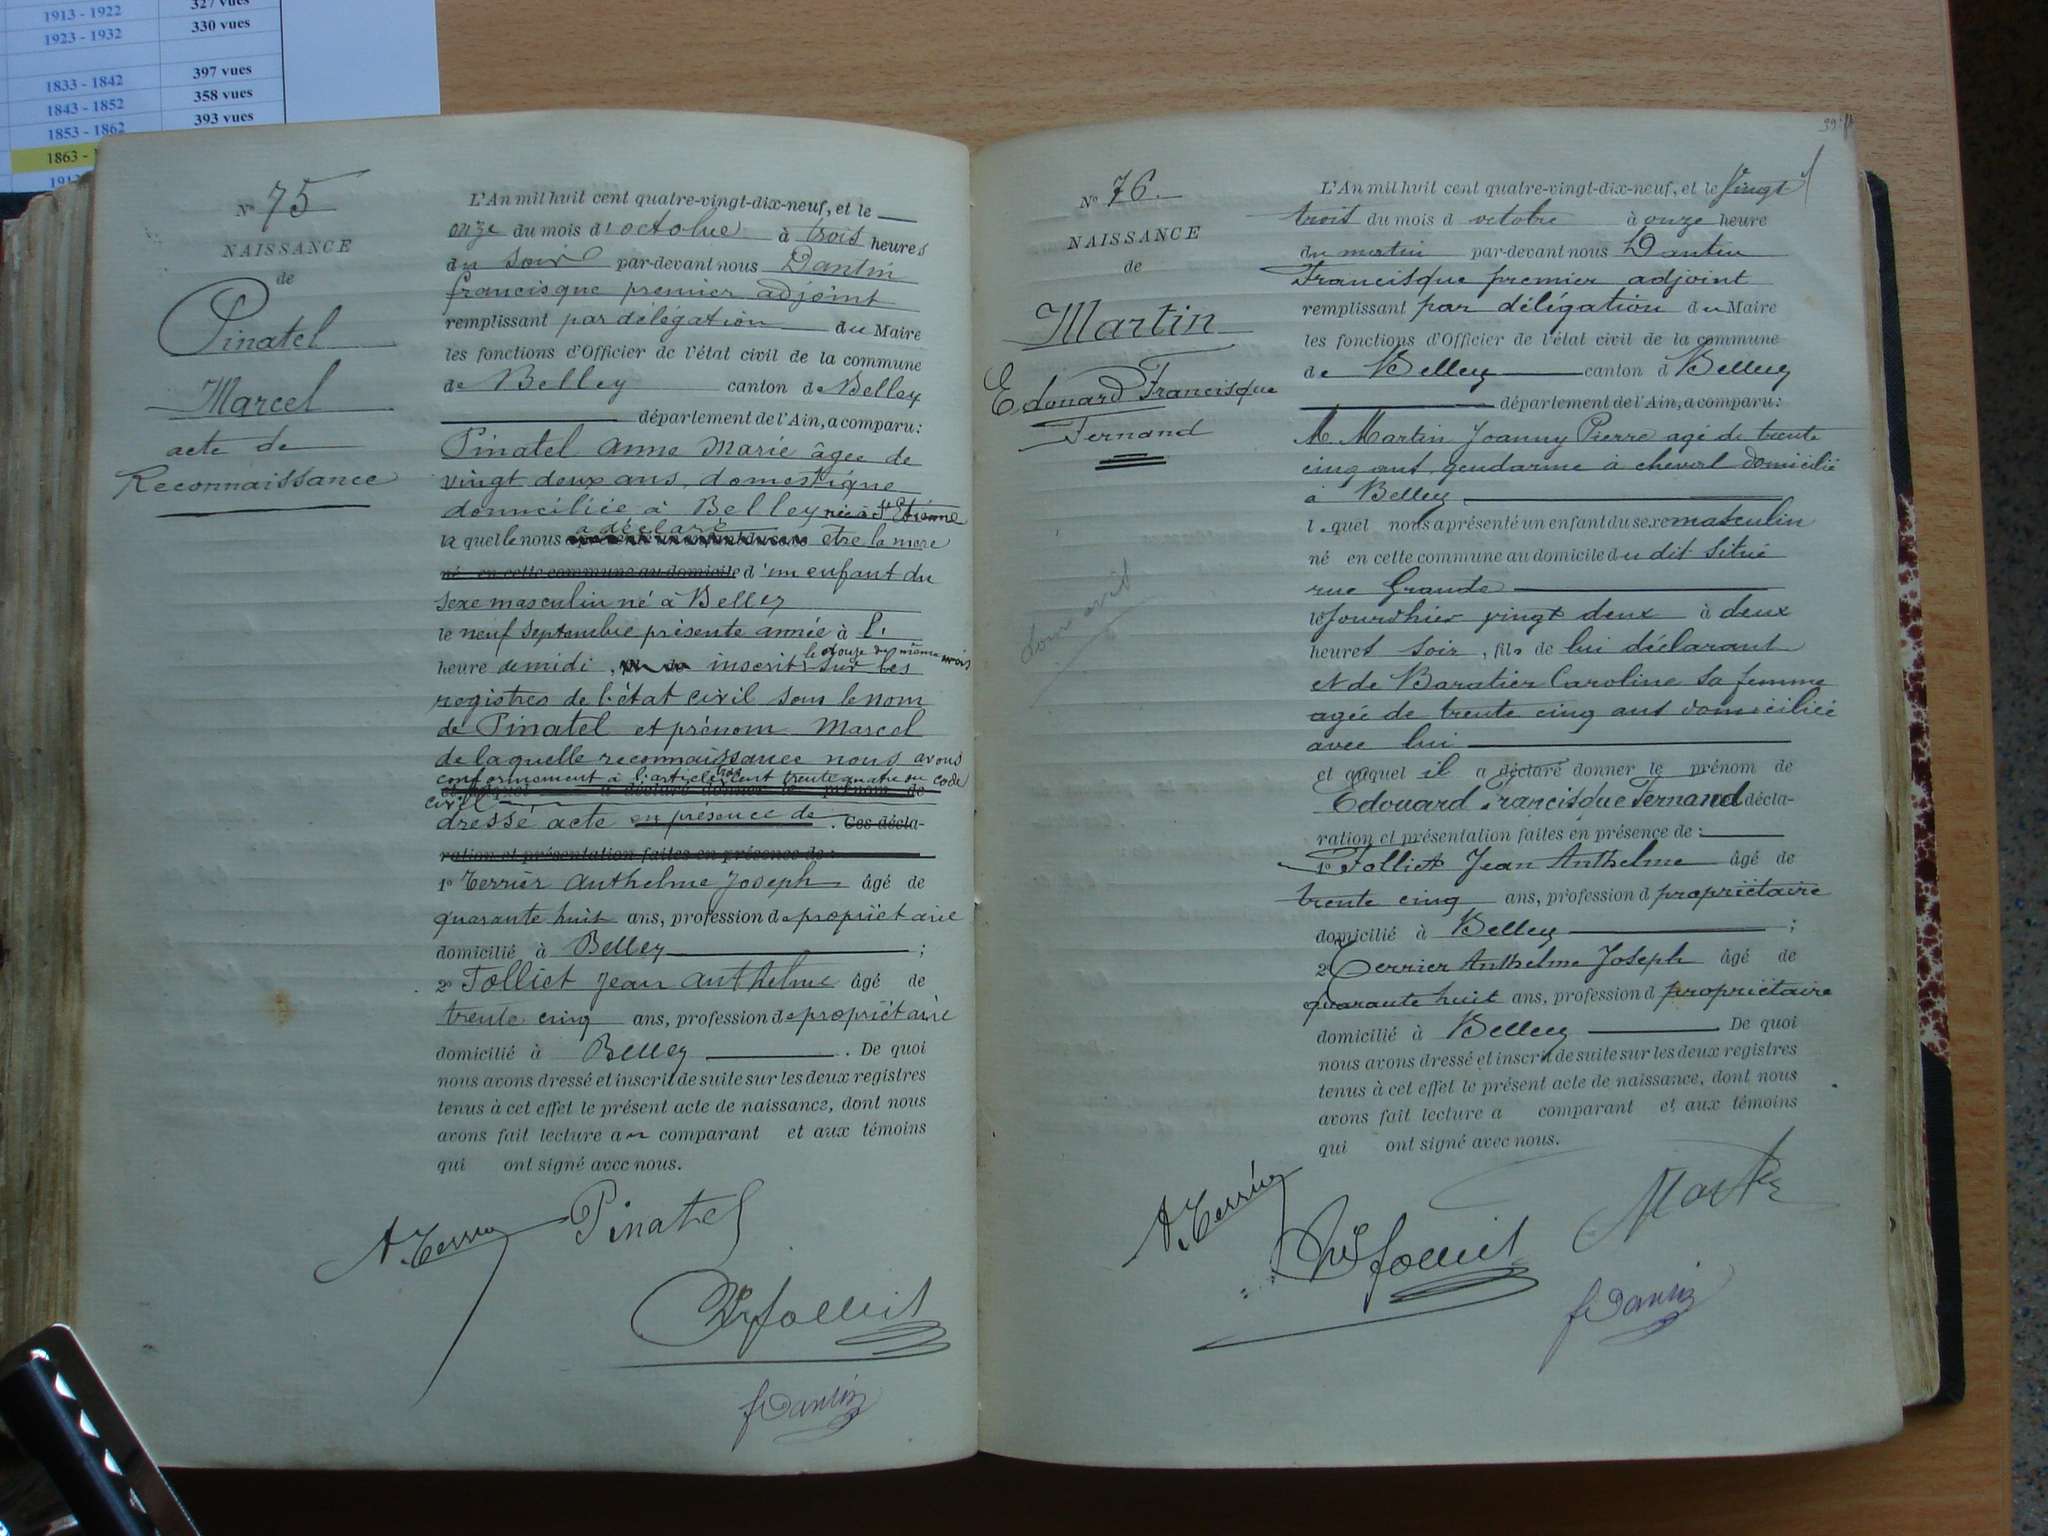 1913 - 1922 327 vues
1923 - 1932 330 vues
1833 - 1842 397 vues
1843 - 1852 358 vues
1853 - 1862 393 vues
1863 -
N° 75
NAISSANCE
de
Pinatel
Marcel
acte de
Reconnaissance
L'An mil huit cent quatre-vingt-dix-neuf, et le
onze du mois d'octobre à trois heures
du soir par-devant nous Dantin
francisque premier adjoint
remplissant par délégation du Maire
les fonctions d'Officier de l'état civil de la commune
de Belley canton de Belley
département de l'Ain, a comparu:
Pinatel anne Marie âgée de
vingt deux ans, domestique
domiciliée à Belley née à St Etienne
la quelle nous a déclaré être la mere
né en cette commune au domicile d'un enfant du
sexe masculin né à Belley
le neuf septembre présente année à l'
heure de midi, inscrit le douze du même mois sur les
registres de l'état civil sous le nom
de Pinatel et prénom Marcel
de laquelle reconnaissance nous avons
conformément à l'article trois cent trente quatre du code
et auquel a déclaré donner le prénom de
civil
dressé acte en présence de . Ces décla-
ration et présentation faites en présence de :
1° Terrier Anthelme Joseph âgé de
quarante huit ans, profession de propriétaire
domicilié à Belley ;
2° Folliet Jean Anthelme âgé de
trente cinq ans, profession de propriétaire
domicilié à Belley . De quoi
nous avons dressé et inscrit de suite sur les deux registres
tenus à cet effet le présent acte de naissance, dont nous
avons fait lecture au comparant et aux témoins
qui ont signé avec nous.
A. Terrier Pinatel
folliet
f Dantin
N° 76
NAISSANCE
de
Martin
Edouard Francisque
Fernand
L'An mil huit cent quatre-vingt-dix-neuf, et le vingt
trois du mois d octobre à onze heure
du matin par-devant nous Dantin
Francisque premier adjoint
remplissant par délégation du Maire
les fonctions d'Officier de l'état civil de la commune
de Belley canton d Belley
département de l'Ain, a comparu:
M. Martin Joanny Pierre agé de trente
cinq ans, gendarme à cheval domicilié
à Belley
lequel nous a présenté un enfant du sexe masculin
né en cette commune au domicile du dit situé
rue Grande
le jourd'hier vingt deux à deux
heures soir, fils de lui déclarant
et de Baratier Caroline sa femme
agée de trente cinq ans domiciliée
avec lui
et auquel il a déclaré donner le prénom de
Edouard Francisque Fernand décla-
ration et présentation faites en présence de :
1° Folliet Jean Anthelme âgé de
trente cinq ans, profession d propriétaire
domicilié à Belley ;
2° Terrier Anthelme Joseph âgé de
quarante huit ans, profession d propriétaire
domicilié à Belley De quoi
nous avons dressé et inscrit de suite sur les deux registres
tenus à cet effet le présent acte de naissance, dont nous
avons fait lecture a comparant et aux témoins
qui ont signé avec nous.
A. Terrier Martin
folliet
f Dantin